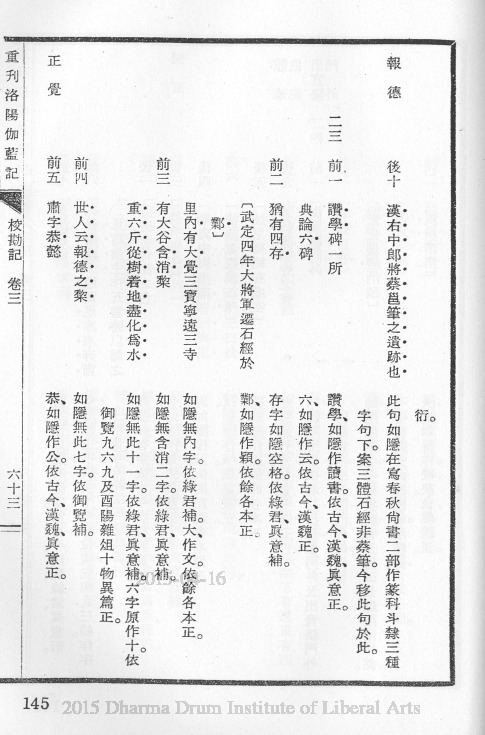 重刊洛陽伽藍記
校勘記 卷三
六十三
衍。
報德 後十 漢右中郎將蔡邕筆之遺跡也 此句如隱在寫春秋尙書二部作篆科斗隸三種
字句下。案三體石經非蔡筆今移此句於此。
二三 前一 讚學碑一所 讚學、如隱作讀書。依古今、漢魏、眞意正。
典論六碑 六、如隱作云。依古今、漢魏正。
前二 猶有四存 存字如隱空格。依綠君、眞意補。
〔武定四年大將軍遷石經於
鄴〕 鄴、如隱作潁。依餘各本正。
里內有大覺三寶寧遠三寺 如隱無內字。依綠君補。大作文。依餘各本正。
前三 有大谷含消棃 如隱無含消二字。依綠君、眞意補。
重六斤從樹着地盡化爲水 如隱無此十一字。依綠君、眞意補。六字原作十。依
御覽九六九及酉陽雜俎十物異篇正。
前四 世人云報德之棃 如隱無此七字。依御覽補。
正覺 前五 肅字恭懿 恭、如隱作公。依古今、漢魏、眞意正。
2015-04-16
145
2015 Dharma Drum Institute of Liberal Arts